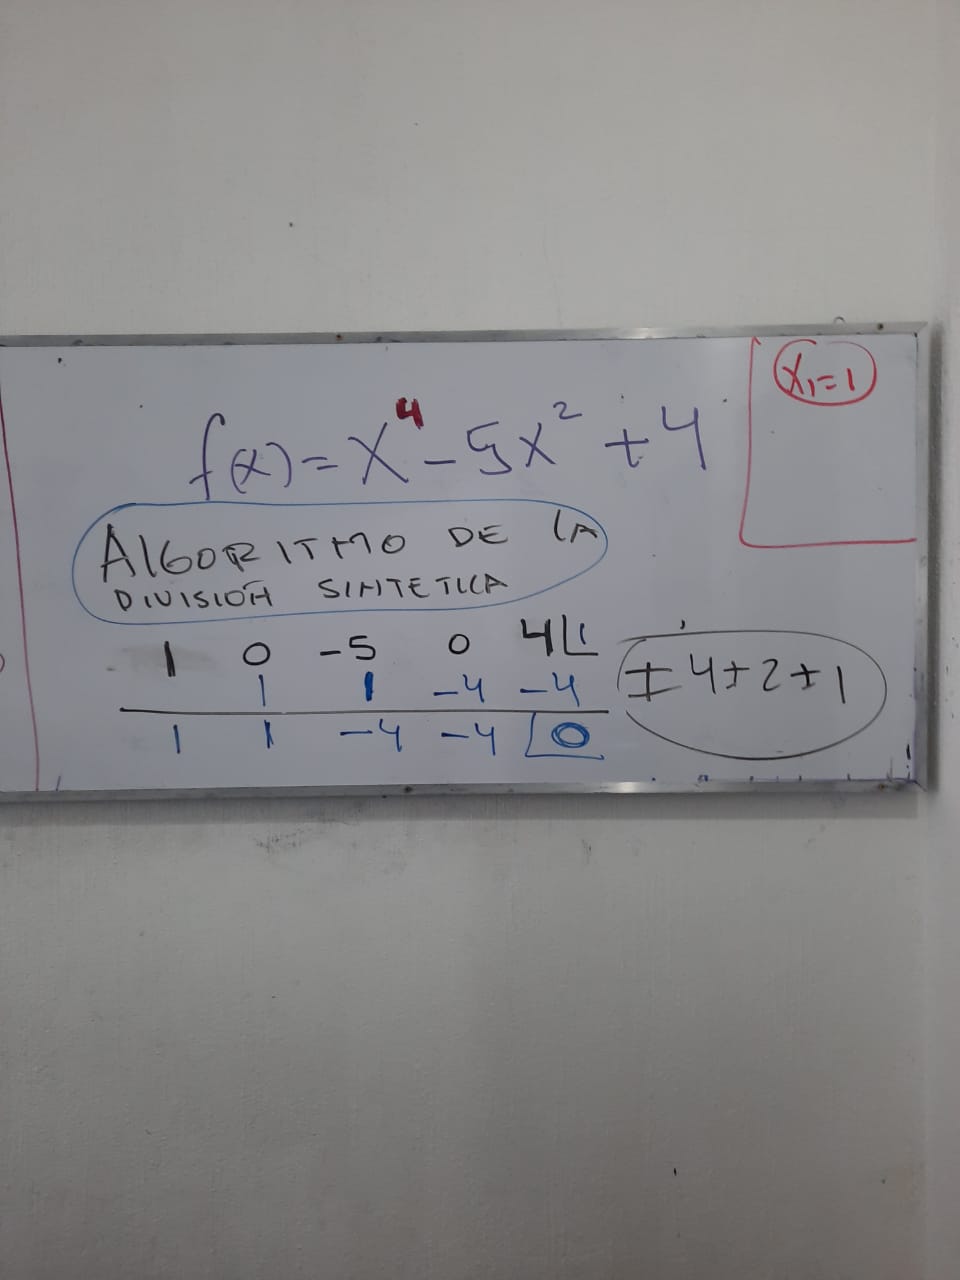 x₁=1
f(x)=x⁴-5x²+4
ALGORITMO DE LA
DIVISIÓN SINTETICA
1 0 -5 0 4⌊1
1 1 -4 -4
1 1 -4 -4 0
±4±2±1